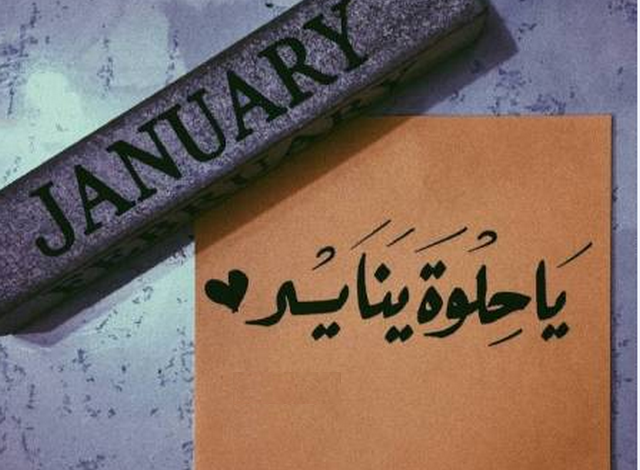 JANUARY
FEBRUARY
يَا حِلْوَة يَنَايْر